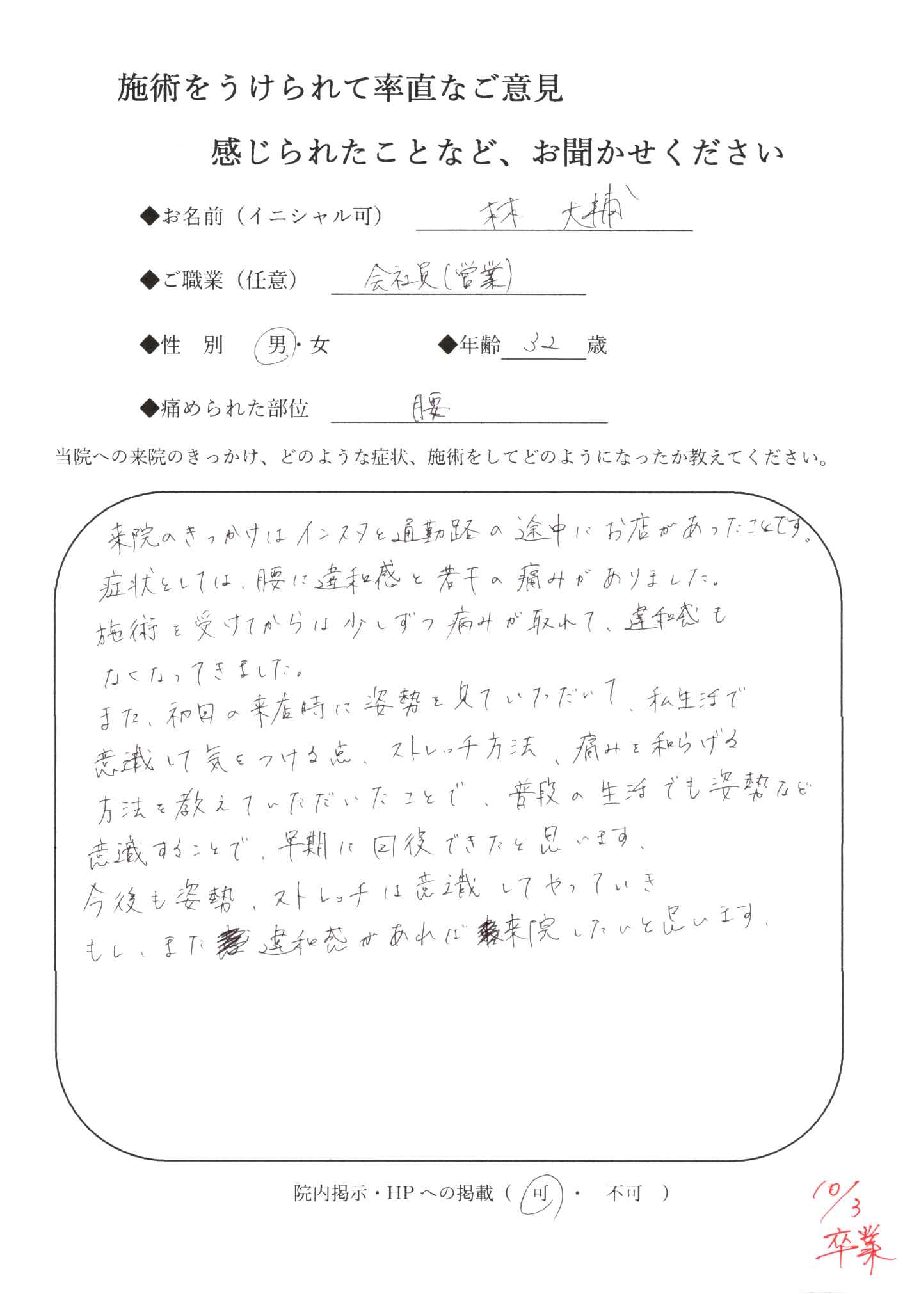 施術をうけられて率直なご意見
感じられたことなど、お聞かせください
◆お名前（イニシャル可） 林 大輔
◆ご職業（任意） 会社員(営業)
◆性 別 男・女 ◆年齢 32 歳
◆痛められた部位 腰
当院への来院のきっかけ、どのような症状、施術をしてどのようになったか教えてください。
来院のきっかけはインスタと通勤路の途中にお店があったことです。
症状としては、腰に違和感と若干の痛みがありました。
施術を受けてからは少しずつ痛みが取れて、違和感も
なくなってきました。
また、初回の来店時に姿勢を見ていただいて、私生活で
意識して気をつける点、ストレッチ方法、痛みを和らげる
方法を教えていただいたことで、普段の生活でも姿勢など
意識することで、早期に回復できたと思います。
今後も姿勢、ストレッチは意識してやっていき
もし、また違和感があれば来院したいと思います。
院内掲示・HPへの掲載（ 可 ・ 不可 ）
10/3
卒業